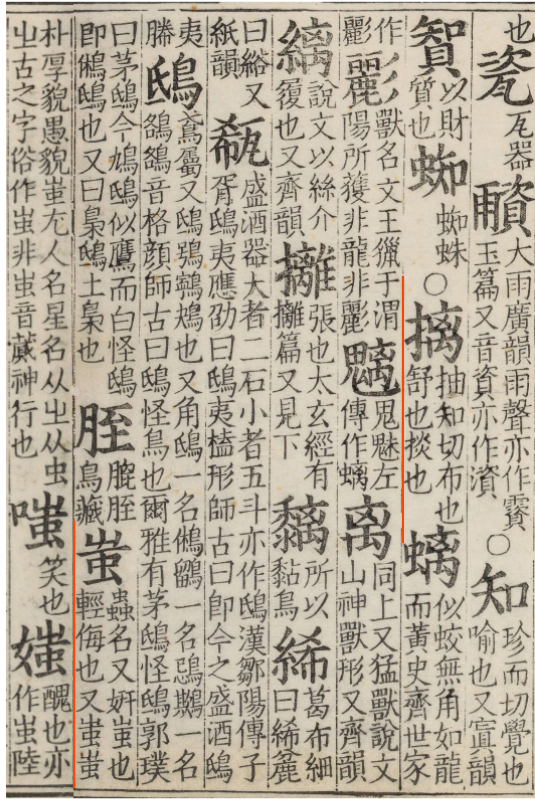 也瓷瓦器大雨廣韻雨聲亦作霣玉篇又音資亦作○知珍而切覺也喻也又寘韻
以財質也蜘蜘蛛○摛抽知切布也舒也掞也螭似蛟無角如龍而黃史齊世家
作彲彲獸名文王獵于渭陽所獲非龍非彲魑鬼魅左傳作螭离同上又猛獸說文山神獸形又齊韻
縭說文以絲介履也又齊韻攡張也太玄經有攡篇又見下黐所以黏鳥絺葛布細曰絺麤
曰綌又紙韻瓻盛酒器大者二石小者五斗亦作鴟漢鄒陽傳子胥鴟夷應劭曰鴟夷榼形師古曰即今之盛酒鴟
夷幐鴟鳶屬又鴟鴞鸋鴂也又角鴟一名鵂鶹一名鵋䳢一名鵅鵅音格顔師古曰鴟怪鳥也爾雅有茅鴟怪鴟郭璞
曰茅鴟今鳩鴟似鷹而白怪鴟即鵂鴟也又曰梟鴟土梟也胵膍胵鳥藏蚩蟲名又妍蚩也輕侮也又蚩蚩
朴厚貌愚貌蚩尤人名星名从㞢从虫㞢古之字俗作蚩非虫音神行也嗤笑也媸醜也亦作蚩陸